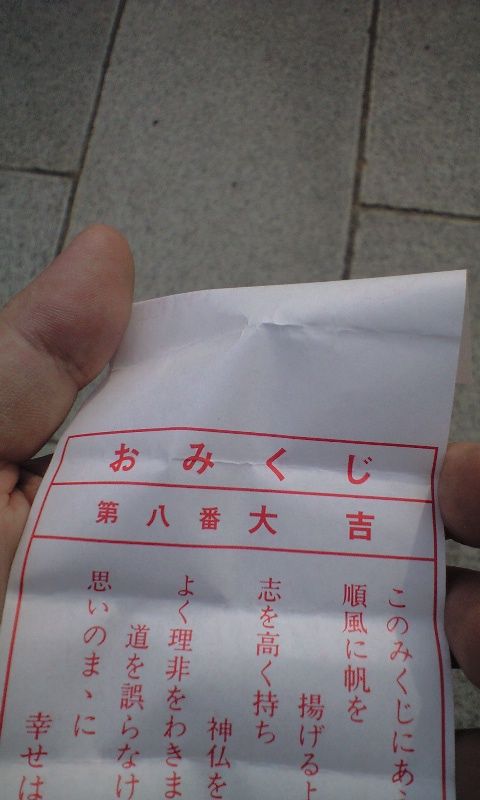 おみくじ
第八番大吉
このみくじにあ
順風に帆を
揚げるよ
志を高く持ち
神仏を
よく理非をわきま
道を誤らなけ
思いのまゝに
幸せは